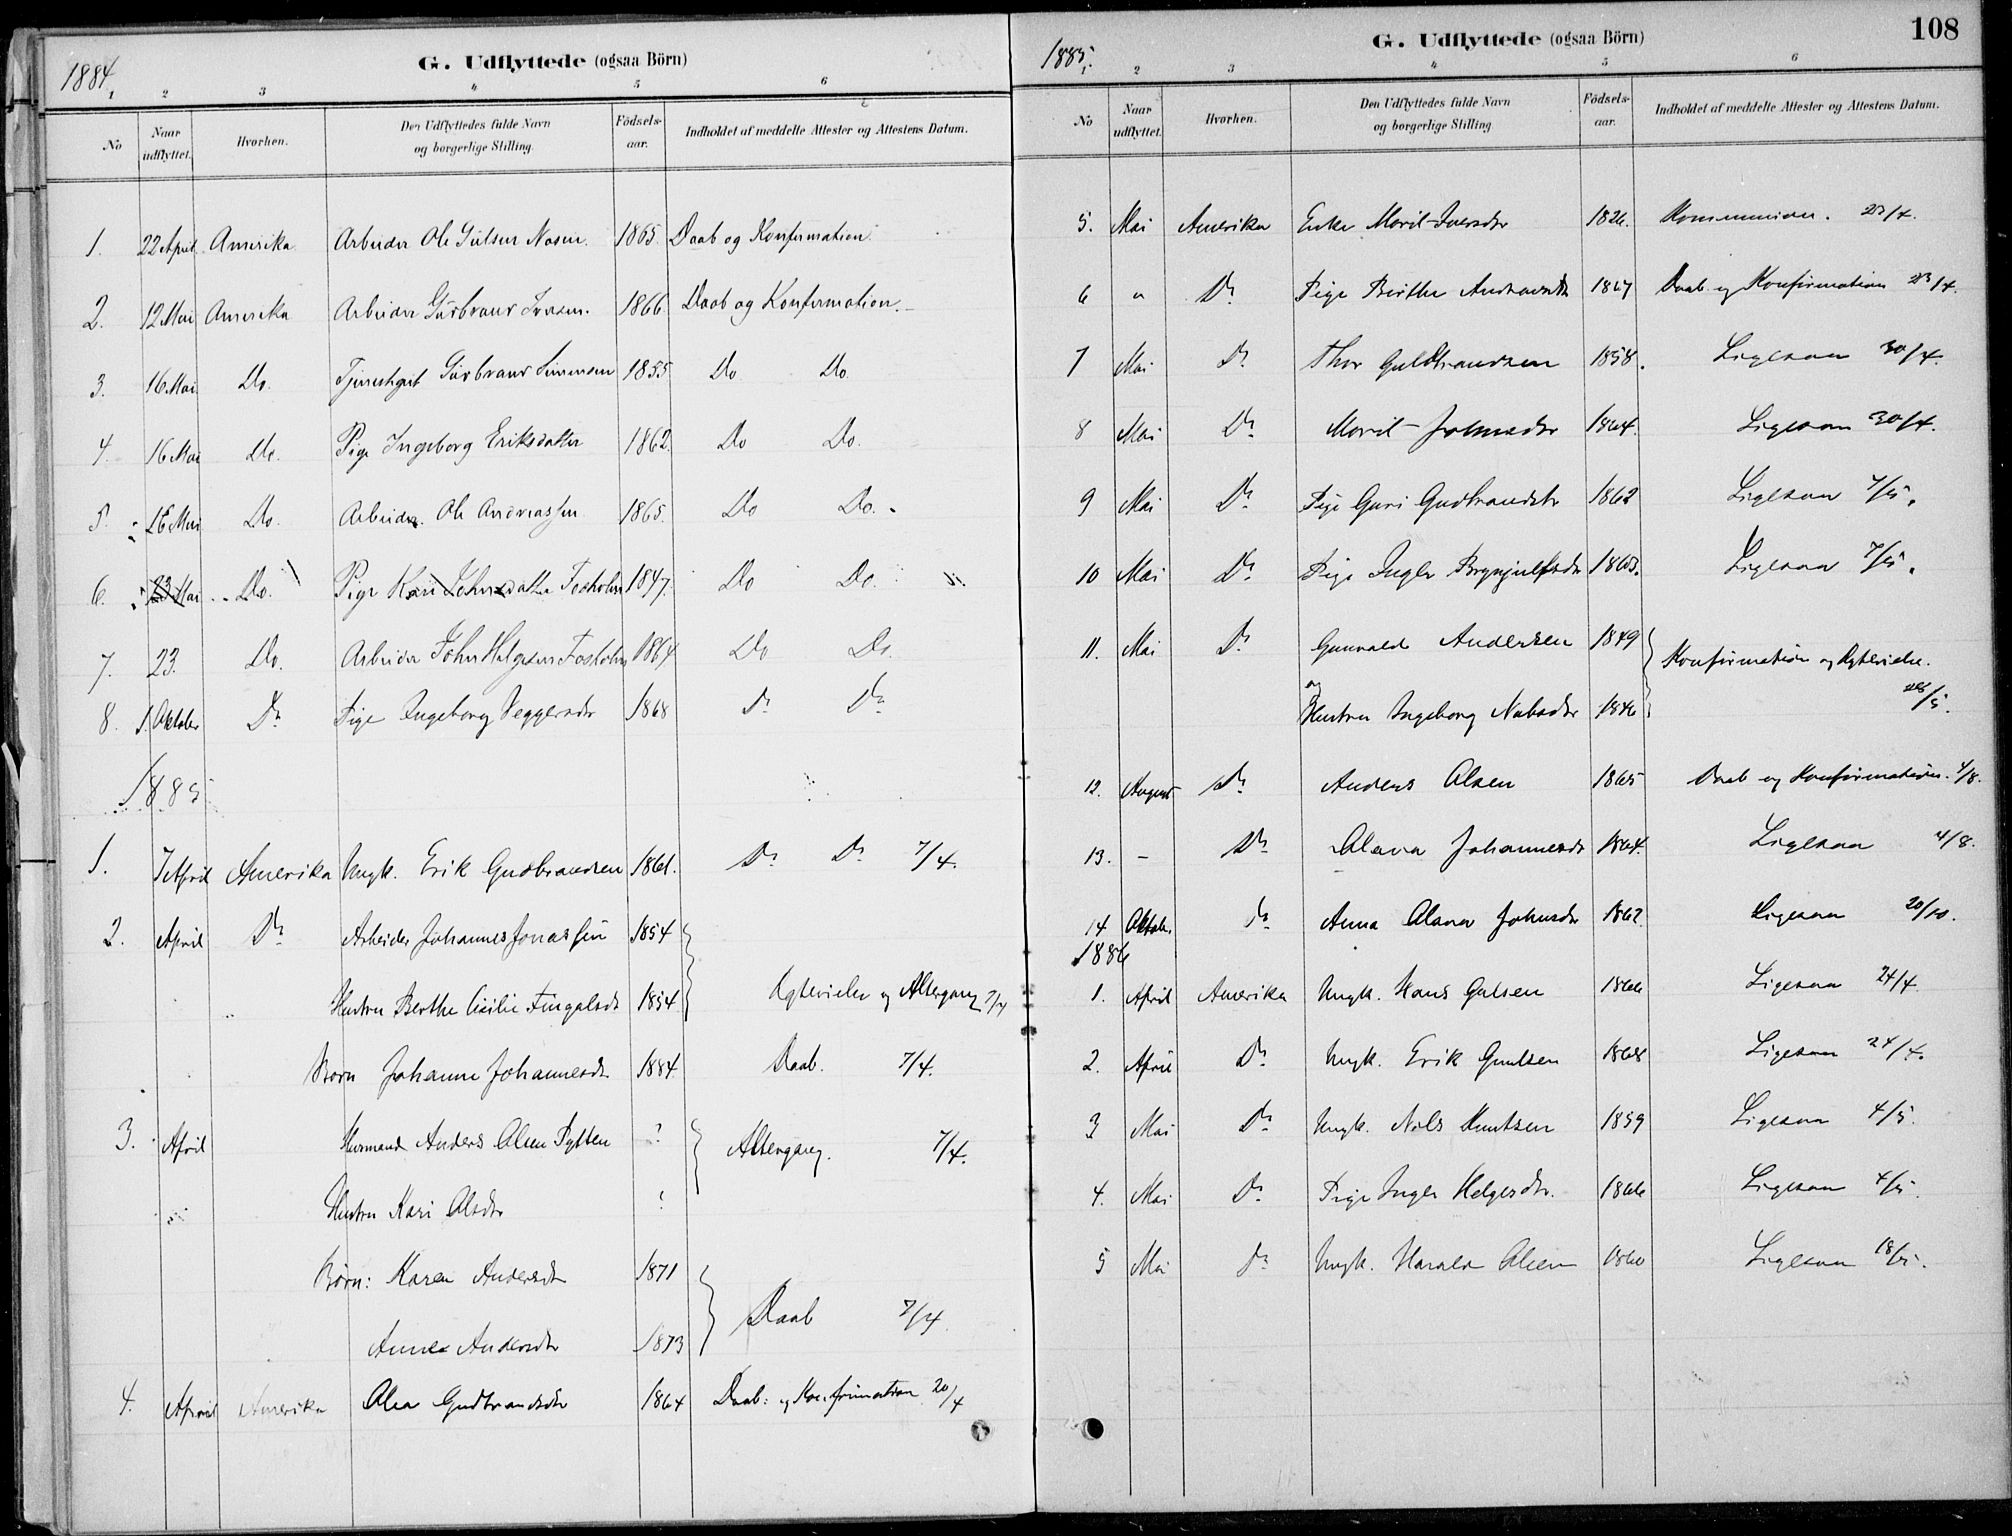 1884.
G. Udflyttede (ogsaa Börn)
1 2 3 4 5 6
No
Naar udflyttet.
Hvorhen.
Den Udflyttedes fulde Navn og borgerlige Stilling.
Födsels-aar.
Indholdet af meddelte Attester og Attestens Datum.
1. 22 April Amerika Arbeider Ole 1865. Daab og Konfirmation
2. 12 Mai Amerika Arbeider Gúlbrand Iversen. 1866 Daab og Konfirmation.
3. 16 Mai Do. Gúlbrand Simensen 1855 Do Do.
4. 16 Mai Do. Pige Ingeborg Eriksdatter 1862. Do Do.
5. 16 Mai Do. Arbeider Ole Andreassen 1865. Do Do.
6. 23 Mai Do. Pige Kari Johnsdatter Fosholm 1847. Do Do.
7. 23. Do. Arbeider John Helgesen Fosholm 1864 Do Do.
8. 1. Oktober Do Pige Ingeborg Veggersdtr 1868 Do Do
1885
1. 7 April Amerika Ungk. Erik Gudbrandsen 1861. Do Do 7/4.
2. April Do Arbeider Johannes Jonassen 1854
Hustru Berthe Cicilie Fingalsdt 1854 Ægtevielse og Altergang 7/4
Barn Johanne Johannesdt. 1884. Daab. 7/4.
3. April Husmand Anders Olsen Pytten ? Altergang. 7/4.
Hustru Kari Olsdtr ?
Börn: Karen Andersdtr 1871
Daab 7/4.
Anne Andersdtr 1873
4. April Amerika Olea Gudbrandsdtr 1864 Daab: og Konfirmation 20/4
108
1885.
G. Udflyttede (ogsaa Börn)
1 2 3 4 5 6
No
Naar udflyttet.
Hvorhen.
Den Udflyttedes fulde Navn og borgerlige Stilling
Födsels-aar.
Indholdet af meddelte Attester og Attestens Datum.
5. Mai Amerika Enke Marit Iversdtr 1826. 23/4.
6 " Do Pige Birthe Andreasdtr Daab og Konfirmation 23/4.
7 Mai Do Thor Guldbrandsen 1858. Ligesaa 30/4.
8 Mai Do Marit Johnsdtr 1864. Ligesaa 30/4.
9 Mai Do Pige Guri Gudbrandsdtr 1862 Ligesaa 7/5.
10 Mai Do Pige Ingler Brynjulfsdtr 1863. Ligesaa 7/5.
11. Mai Do Gunvald Andersen 1849
Konfirmation og Ægtevielse.
og
Hustru Ingeborg Nubsdtr 1846 28/5.
12. August Do Anders Olsen 1865 Daab og Konfirmation. 4/8.
13. – Do Olava Johannesdt 1864. Ligesaa 4/8.
14 Oktob. Do Anna Olava Johnsdtr 1862. Ligesaa 20/10.
1886
1. April Amerika Ungk. Hans Gulsen 1866 Ligesaa 24/4
2. April Do Ungk. Erik Gundsen 1868 Ligesaa 24/4.
3 Mai Do Ungk. Nils Knutsen 1859 Ligesaa 4/5.
4. Mai Do Pige Ingler Helgesdtr. 1866 Ligesaa 4/5.
5 Mai Do Ungk. Harald Olsen 1860 Ligesaa 18/5.